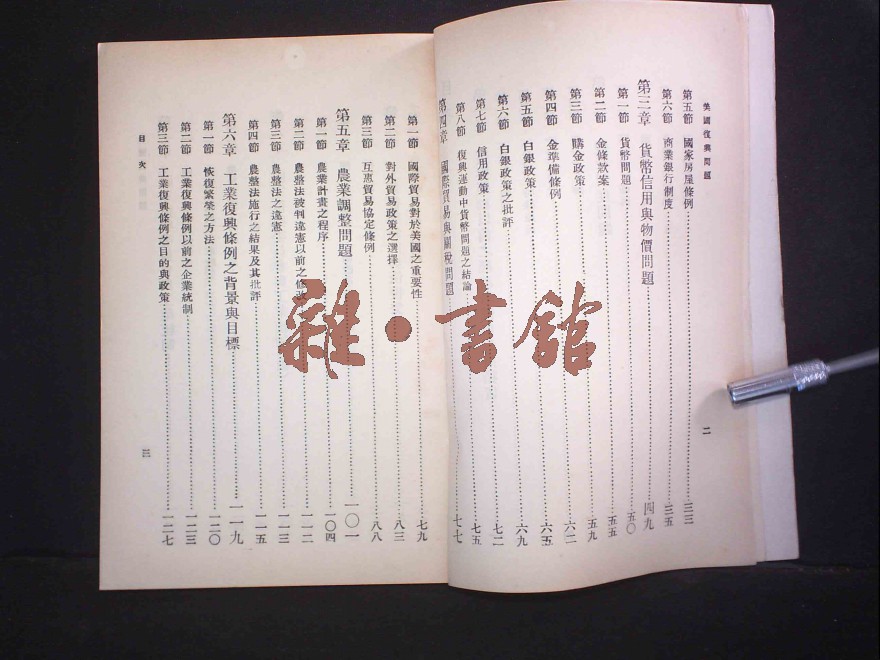 美國復興問題
二
第五節 國家房屋條例 三三
第六節 商業銀行制度 三五
第三章 貨幣信用與物價問題 四九
第一節 貨幣問題 五〇
第二節 金條款案 五五
第三節 購金政策 五九
第四節 金準備條例 六二
第五節 白銀政策 六五
第六節 白銀政策之批評 六九
第七節 信用政策 七二
第八節 復興運動中貨幣問題之結論 七五
第四章 國際貿易與關稅問題 七七
第一節 國際貿易對於美國之重要性 七九
第二節 對外貿易政策之選擇 八三
第三節 互惠貿易協定條例 八八
第五章 農業調整問題 一〇一
第一節 農業計畫之程序 一〇四
第二節 農整法被判違憲以前之修改 一一二
第三節 農整法之違憲 一一三
第四節 農整法施行之結果及其批評 一一五
第六章 工業復興條例之背景與目標 一一九
第一節 恢復繁榮之方法 一二〇
第二節 工業復興條例以前之企業統制 一二三
第三節 工業復興條例之目的與政策 一二七
目次
三
雜·書館